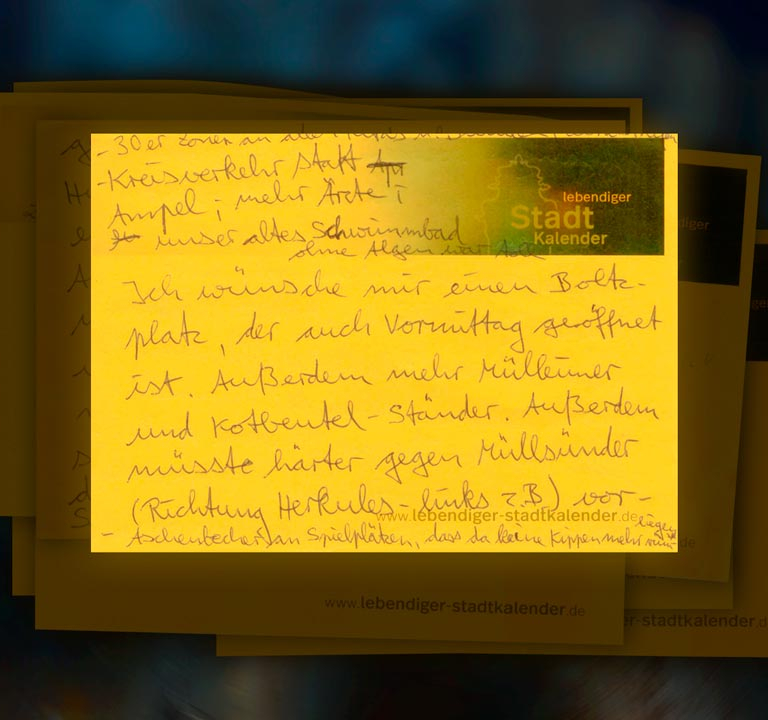 - 30er Zonen an
-Kreisverkehr statt
Ampel ; mehr Ärzte ;
unser altes Schwimmbad
ohne Algen war
lebendiger
Stadt
Kalender
Ich wünsche mir einen Boltz-
platz, der auch Vormittag geöffnet
ist. Außerdem mehr Mülleimer
und Kotbeutel-Ständer. Außerdem
müsste härter gegen Müllsünder
(Richtung Herkules-links z.B) vor-
www.lebendiger-stadtkalender.de
- Aschenbecher an Spielplätzen, dass da keine Kippen mehr rum
liegen
www.lebendiger-stadtkalender.de
-stadtkalender.de